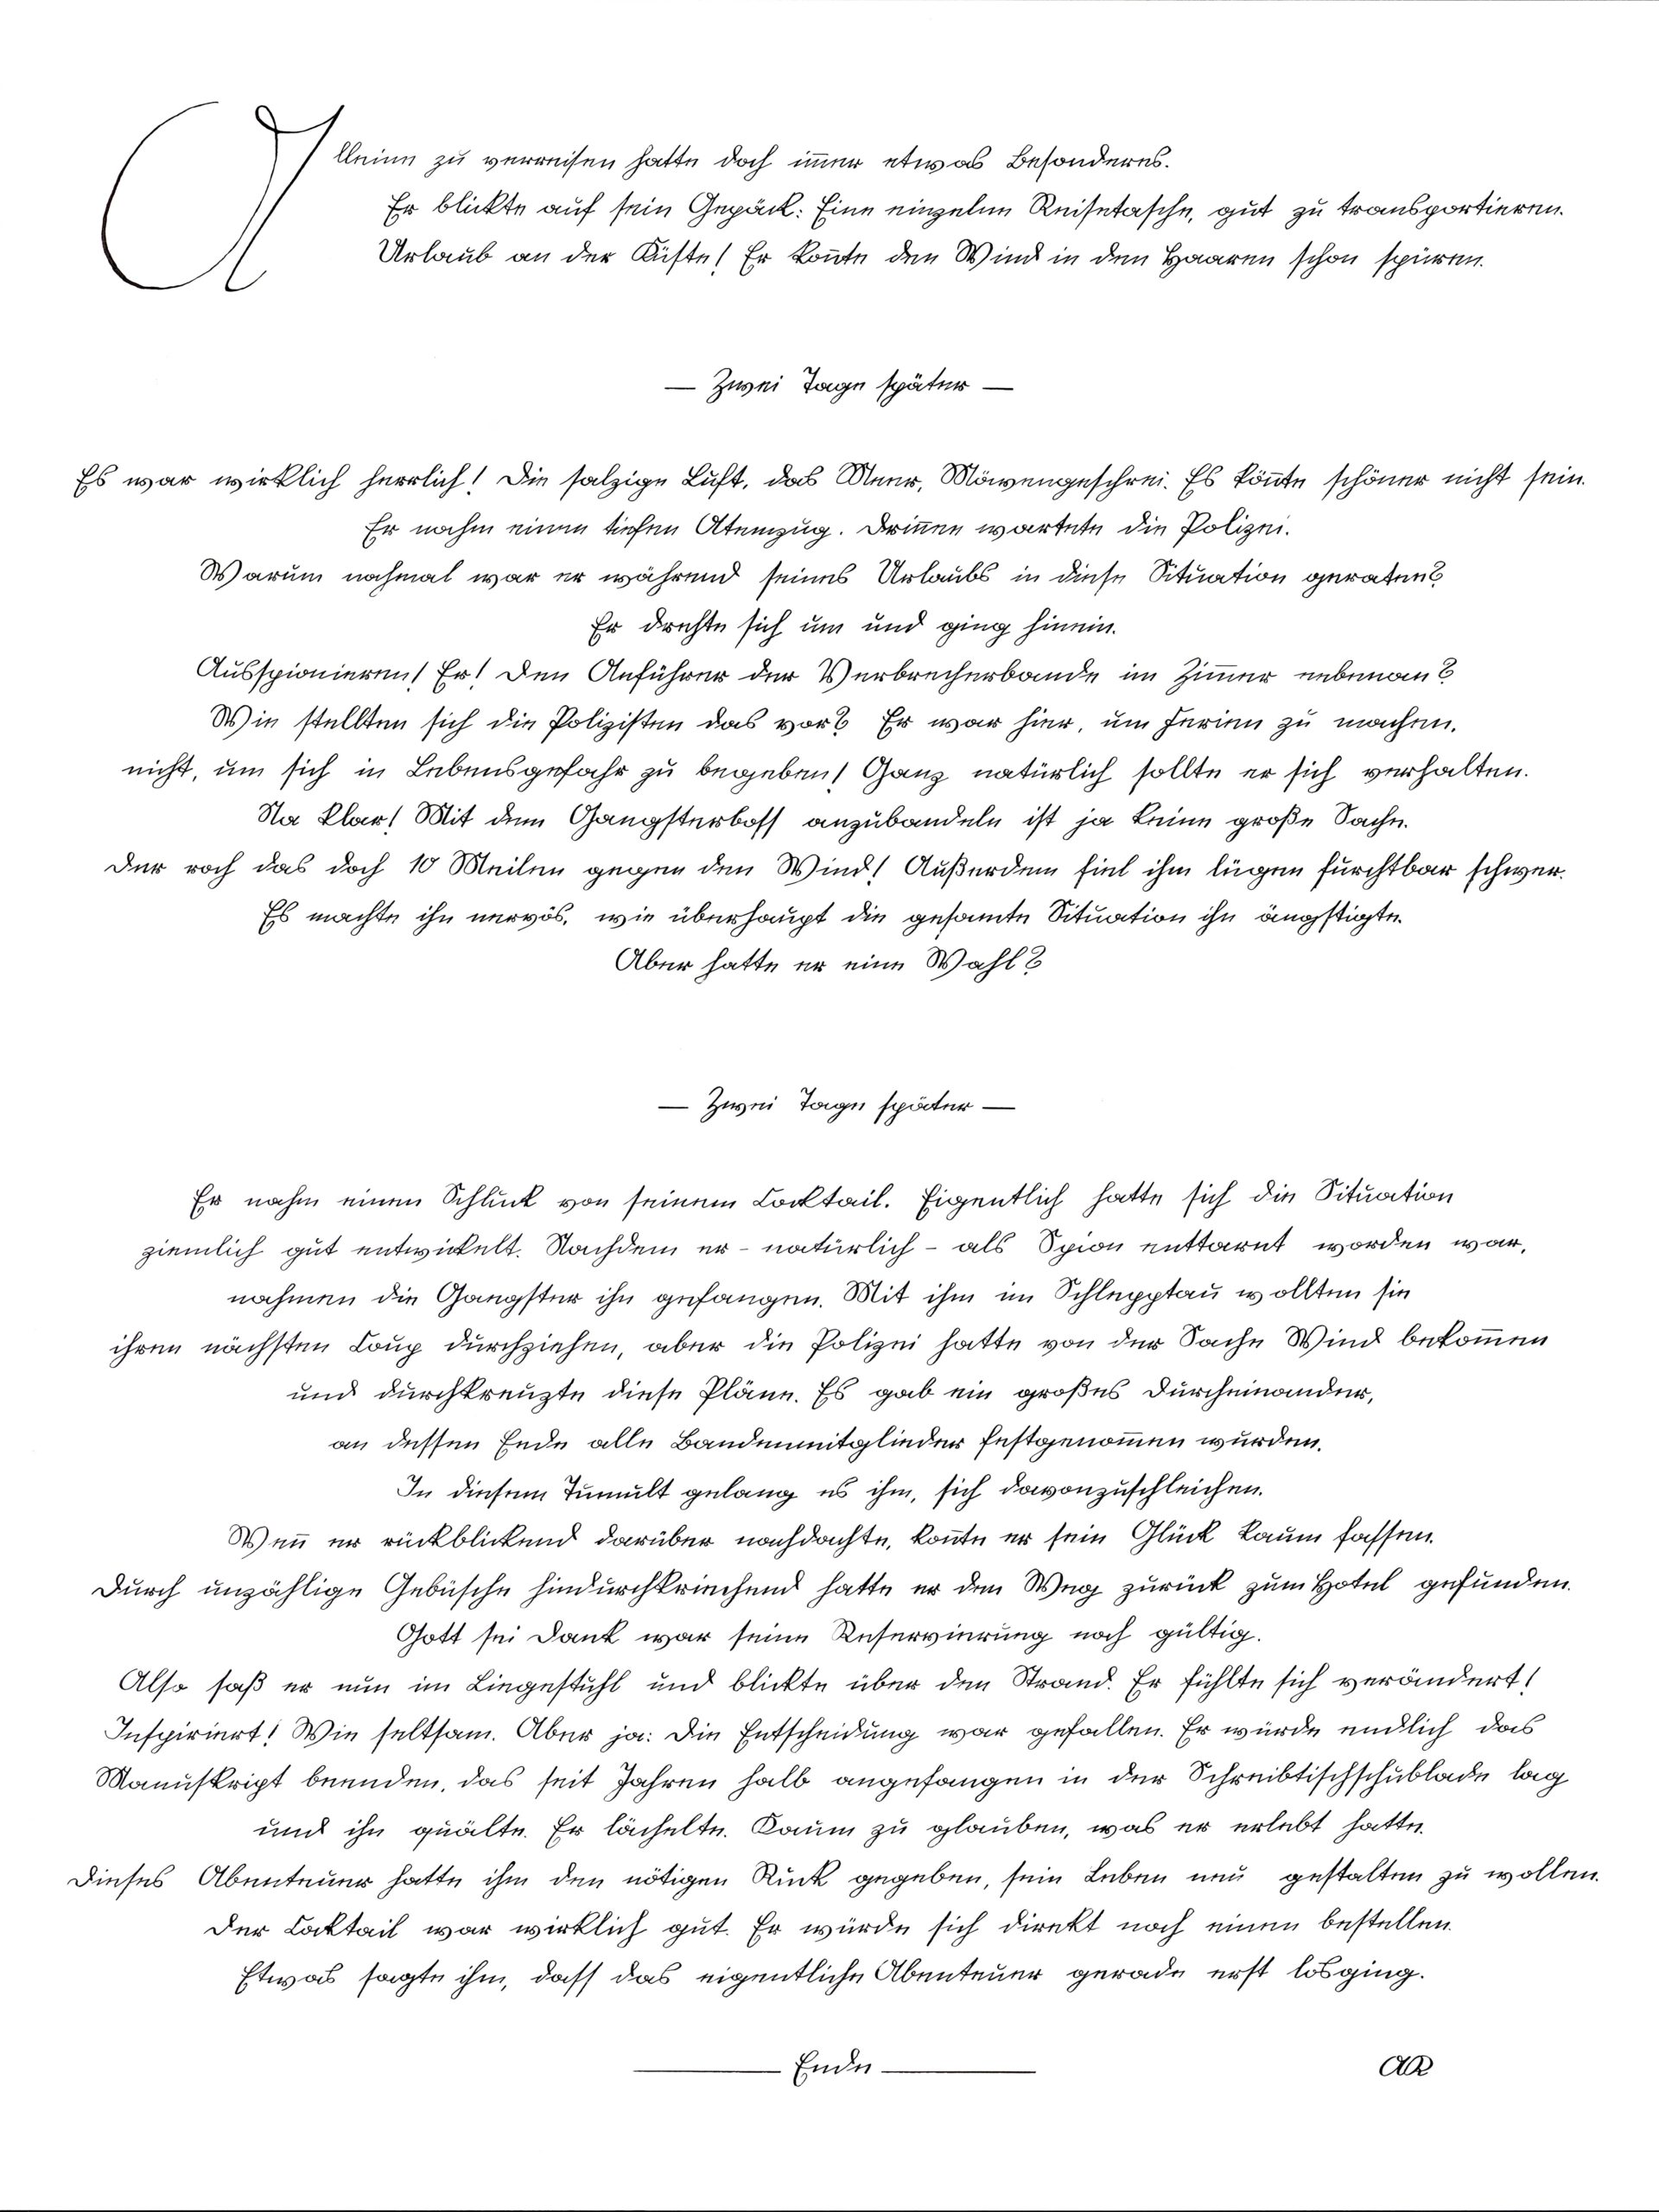 Alleine zu verreisen hatte doch im̄er etwas Besonderes.
Er blickte auf sein Gepäck: Eine einzelne Reisetasche, gut zu transportieren.
Urlaub an der Küste! Er kon̄te den Wind in den Haaren schon spüren.
— Zwei Tage später —
Es war wirklich herrlich! Die salzige Luft, das Meer, Möwengeschrei. Es kön̄te schöner nicht sein.
Er nahm einen tiefen Atemzug. Drin̄en wartete die Polizei.
Warum nochmal war er während seines Urlaubs in diese Situation geraten?
Er drehte sich um und ging hinein.
Ausspionieren! Er! Den Anführer der Verbrecherbande im Zim̄er nebenan?
Wie stellten sich die Polizisten das vor? Er war hier, um Ferien zu machen,
nicht, um sich in Lebensgefahr zu begeben! Ganz natürlich sollte er sich verhalten.
Na klar! Mit dem Gangsterboss anzubandeln ist ja keine große Sache.
Der roch das doch 10 Meilen gegen den Wind! Außerdem fiel ihm lügen furchtbar schwer.
Es machte ihn nervös, wie überhaupt die gesamte Situation ihn ängstigte.
Aber hatte er eine Wahl?
— Zwei Tage später —
Er nahm einen Schluck von seinem Cocktail. Eigentlich hatte sich die Situation
ziemlich gut entwickelt. Nachdem er - natürlich - als Spion enttarnt worden war,
nahmen die Gangster ihn gefangen. Mit ihm im Schlepptau wollten sie
ihren nächsten Coup durchziehen, aber die Polizei hatte von der Sache Wind bekom̄en
und durchkreuzte diese Pläne. Es gab ein großes Durcheinander,
an dessen Ende alle Bandenmitglieder festgenom̄en wurden.
In diesem Tumult gelang es ihm, sich davonzuschleichen.
Wen̄ er rückblickend darüber nachdachte, kon̄te er sein Glück kaum fassen.
Durch unzählige Gebüsche hindurchkriechend hatte er den Weg zurück zum Hotel gefunden.
Gott sei Dank war seine Reservierung noch gültig.
Also saß er nun im Liegestuhl und blickte über den Strand. Er fühlte sich verändert!
Inspiriert! Wie seltsam. Aber ja: Die Entscheidung war gefallen. Er würde endlich das
Manuskript beenden, das seit Jahren halb angefangen in der Schreibtischschublade lag
und ihn quälte. Er lächelte. Kaum zu glauben, was er erlebt hatte.
Dieses Abenteuer hatte ihm den nötigen Ruck gegeben, sein Leben neu gestalten zu wollen.
Der Cocktail war wirklich gut. Er würde sich direkt noch einen bestellen.
Etwas sagte ihm, dass das eigentliche Abenteuer gerade erst losging.
— Ende —
AR